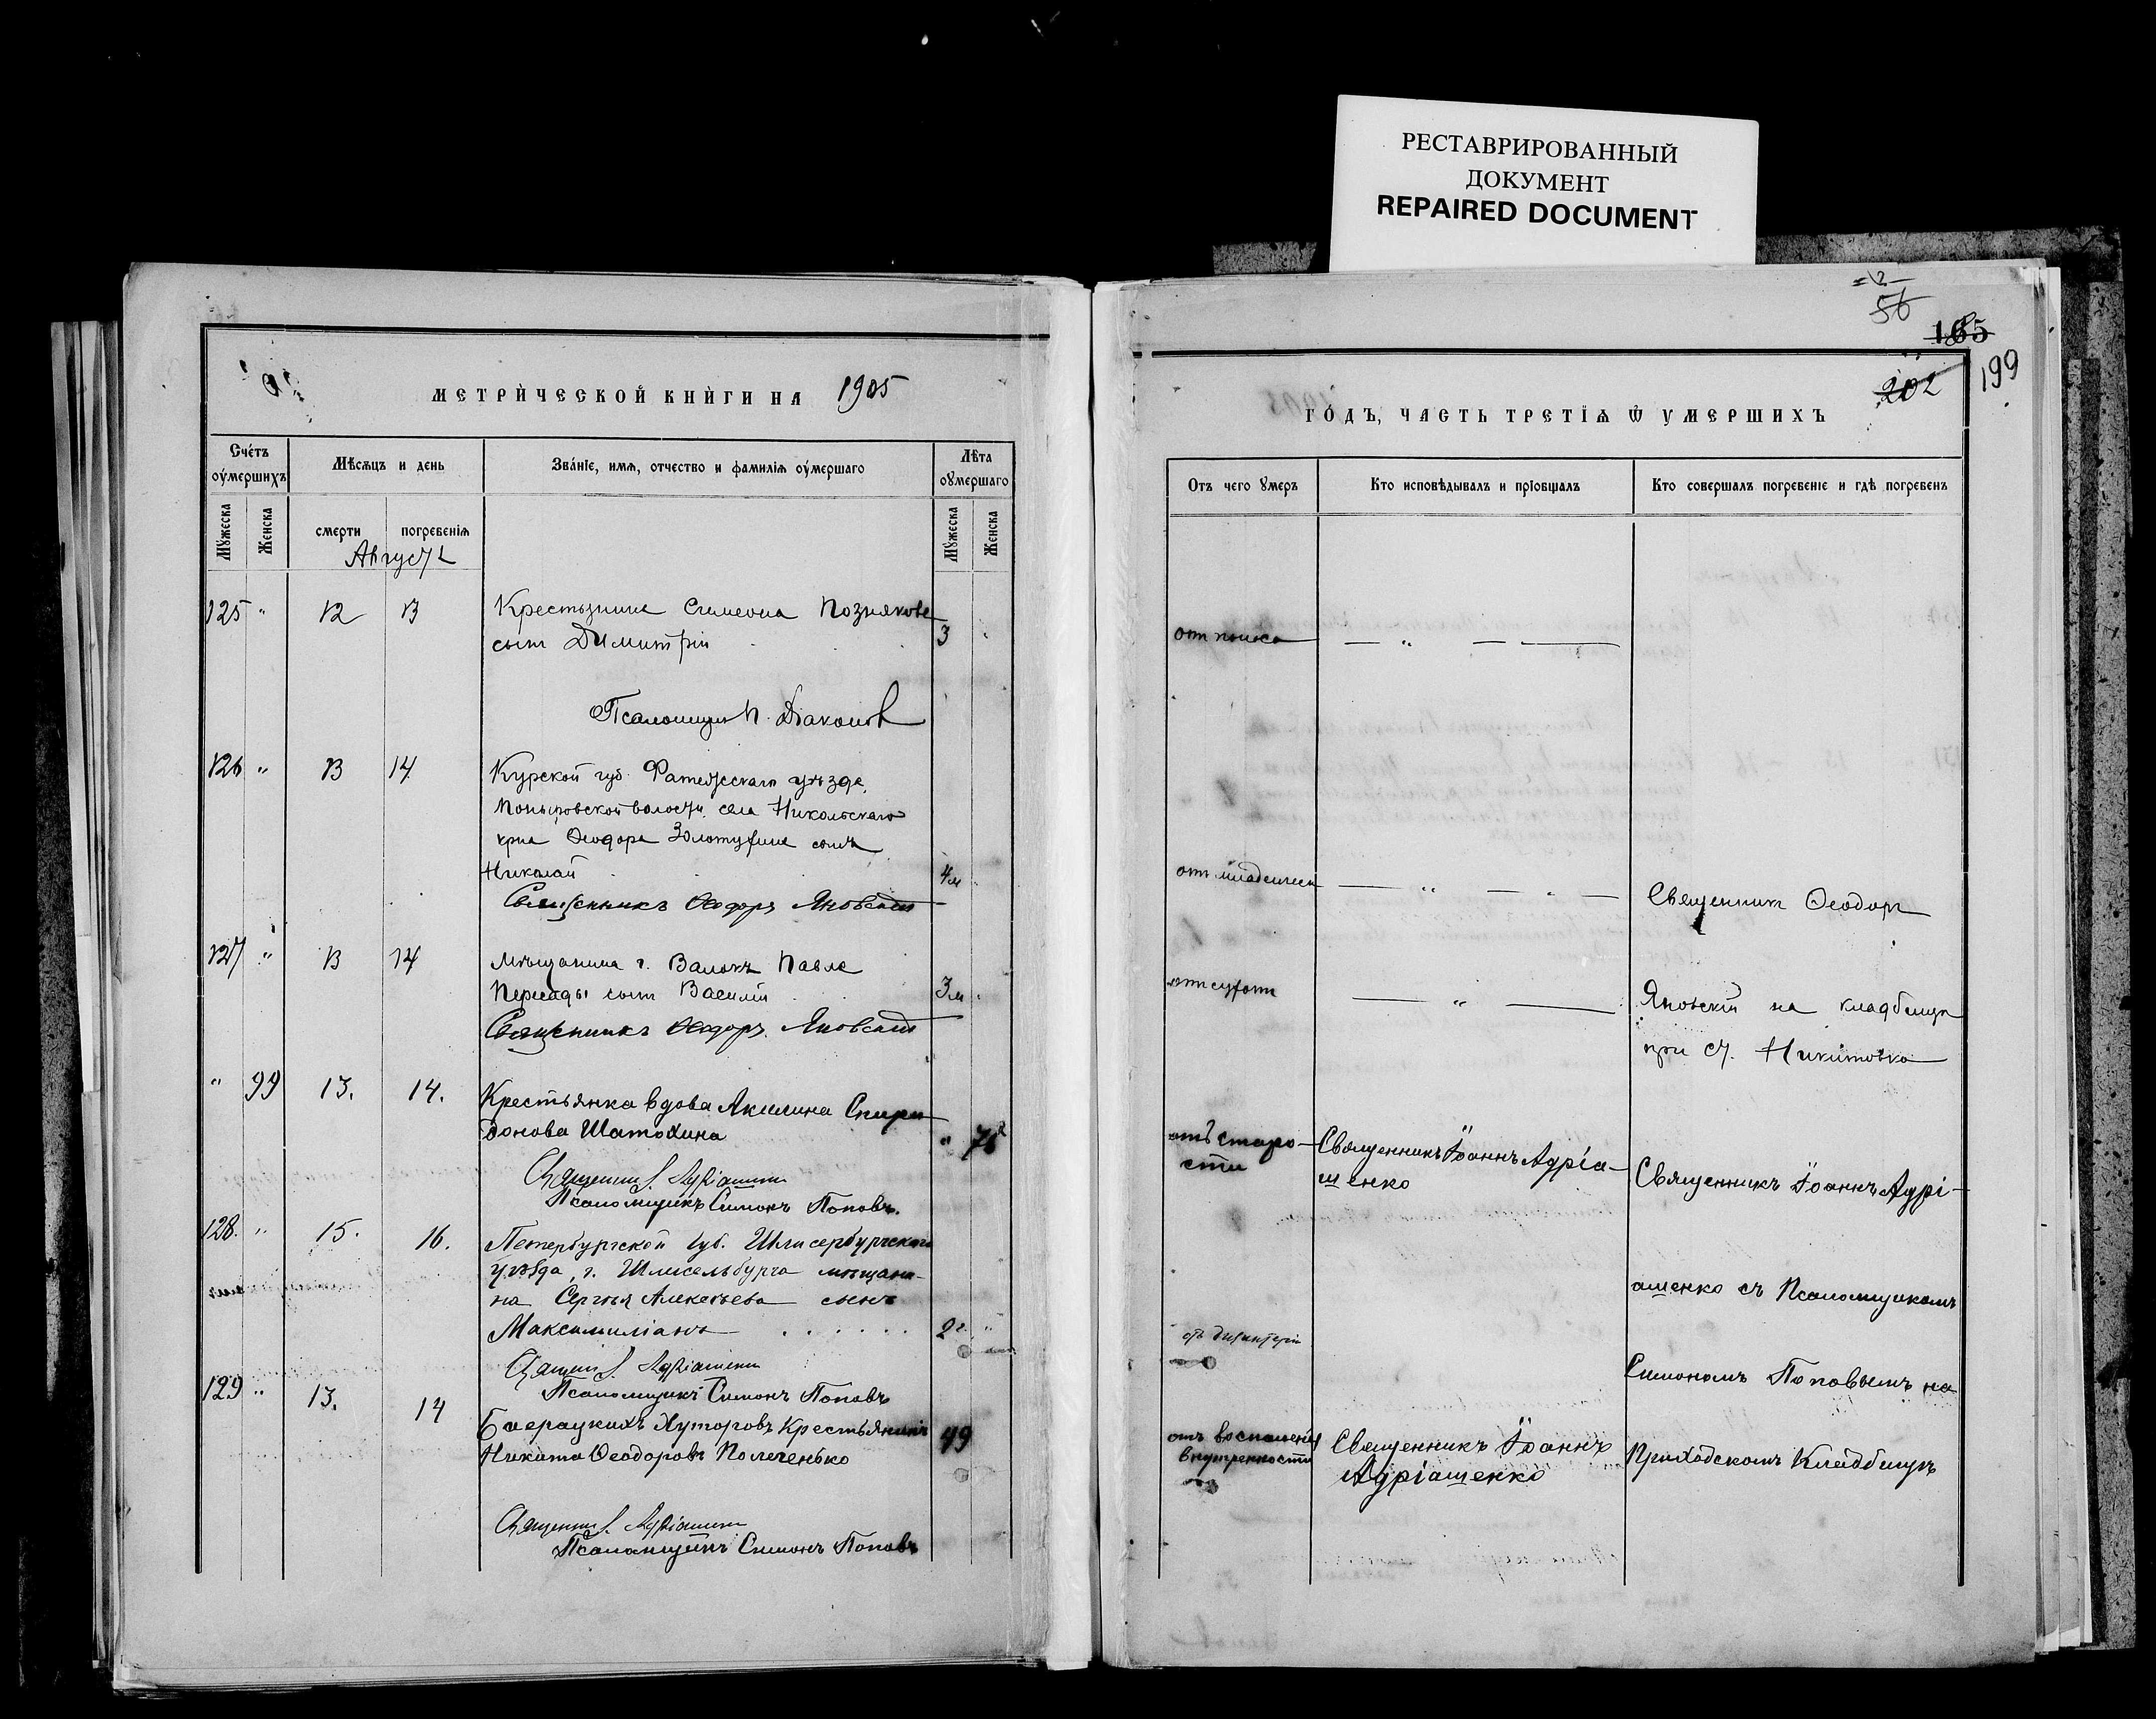 РЕСТАВРИРОВАННЫЙ
ДОКУМЕНТ
REPAIRED DOCUMENT
МЕТРИЧЕСКОЙ КНИГИ НА 1905
Счетъ умершихъ
Мѣсяцъ и день
Званіе, имя, отчество и фамилія умершаго
Лѣта умершаго
Мужеска
Женска
смерти
погребенія
Мужеска
Женска
Августъ
125 " 12 13 Крестьянина Симеона Познякова
сынъ Димитрій 3
Псаломщик П. Діаконов
126 " 13 14 Курской губ. Фатежскаго уѣзда,
Поныровской волости, села Никольскаго
кр-на Ѳеодора Золотухина сынъ
Николай 4 м
Священникъ Ѳеодоръ Яновскій
127 " 13 14 Мѣщанина г. Валокъ Павла
Пересады сынъ Василій 3 м
Священникъ Ѳеодоръ Яновскій
" 99 13. 14. Крестьянка вдова Акилина Спири
донова Шатохина "
Священник І. Адріашенко
Псаломщикъ Симонъ Поповъ.
128. " 15. 16. Петербургской губ. Шлисербургскаго
уѣзда, г. Шлисельбурга мѣщани-
на Сергѣя Алексѣева сынъ
Максимиліанъ 2 г. "
Священник І. Адріашенко
Псаломщикъ Симонъ Поповъ
129 " 13. 14 Баерацкихъ Хуторовъ Крестьянинъ
Никита Ѳеодоровъ Полеченько 49
Священник І. Адріашенко
Псаломщикъ Симонъ Поповъ
56
165
202
199
ГОДЪ, ЧАСТЬ ТРЕТІЯ Ѿ УМЕРШИХЪ
Отъ чего умеръ
Кто исповѣдывалъ и пріобщалъ
Кто совершалъ погребеніе и гдѣ погребенъ
от поноса — " — —
от младенческ — " — " — Священник Ѳеодоръ
от сухот — " — Яновскій на кладбищѣ
при ст. Никитовка
отъ старо-
сти
Священникъ Іоаннъ Адріа-
шенко
Священникъ Іоаннъ Адрі-
ашенко съ Псаломщикомъ
от дизентеріи
Симономъ Поповымъ на
отъ воспаленія
внутренности
Священникъ Іоаннъ
Адріашенко
Приходскомъ Кладбищѣ